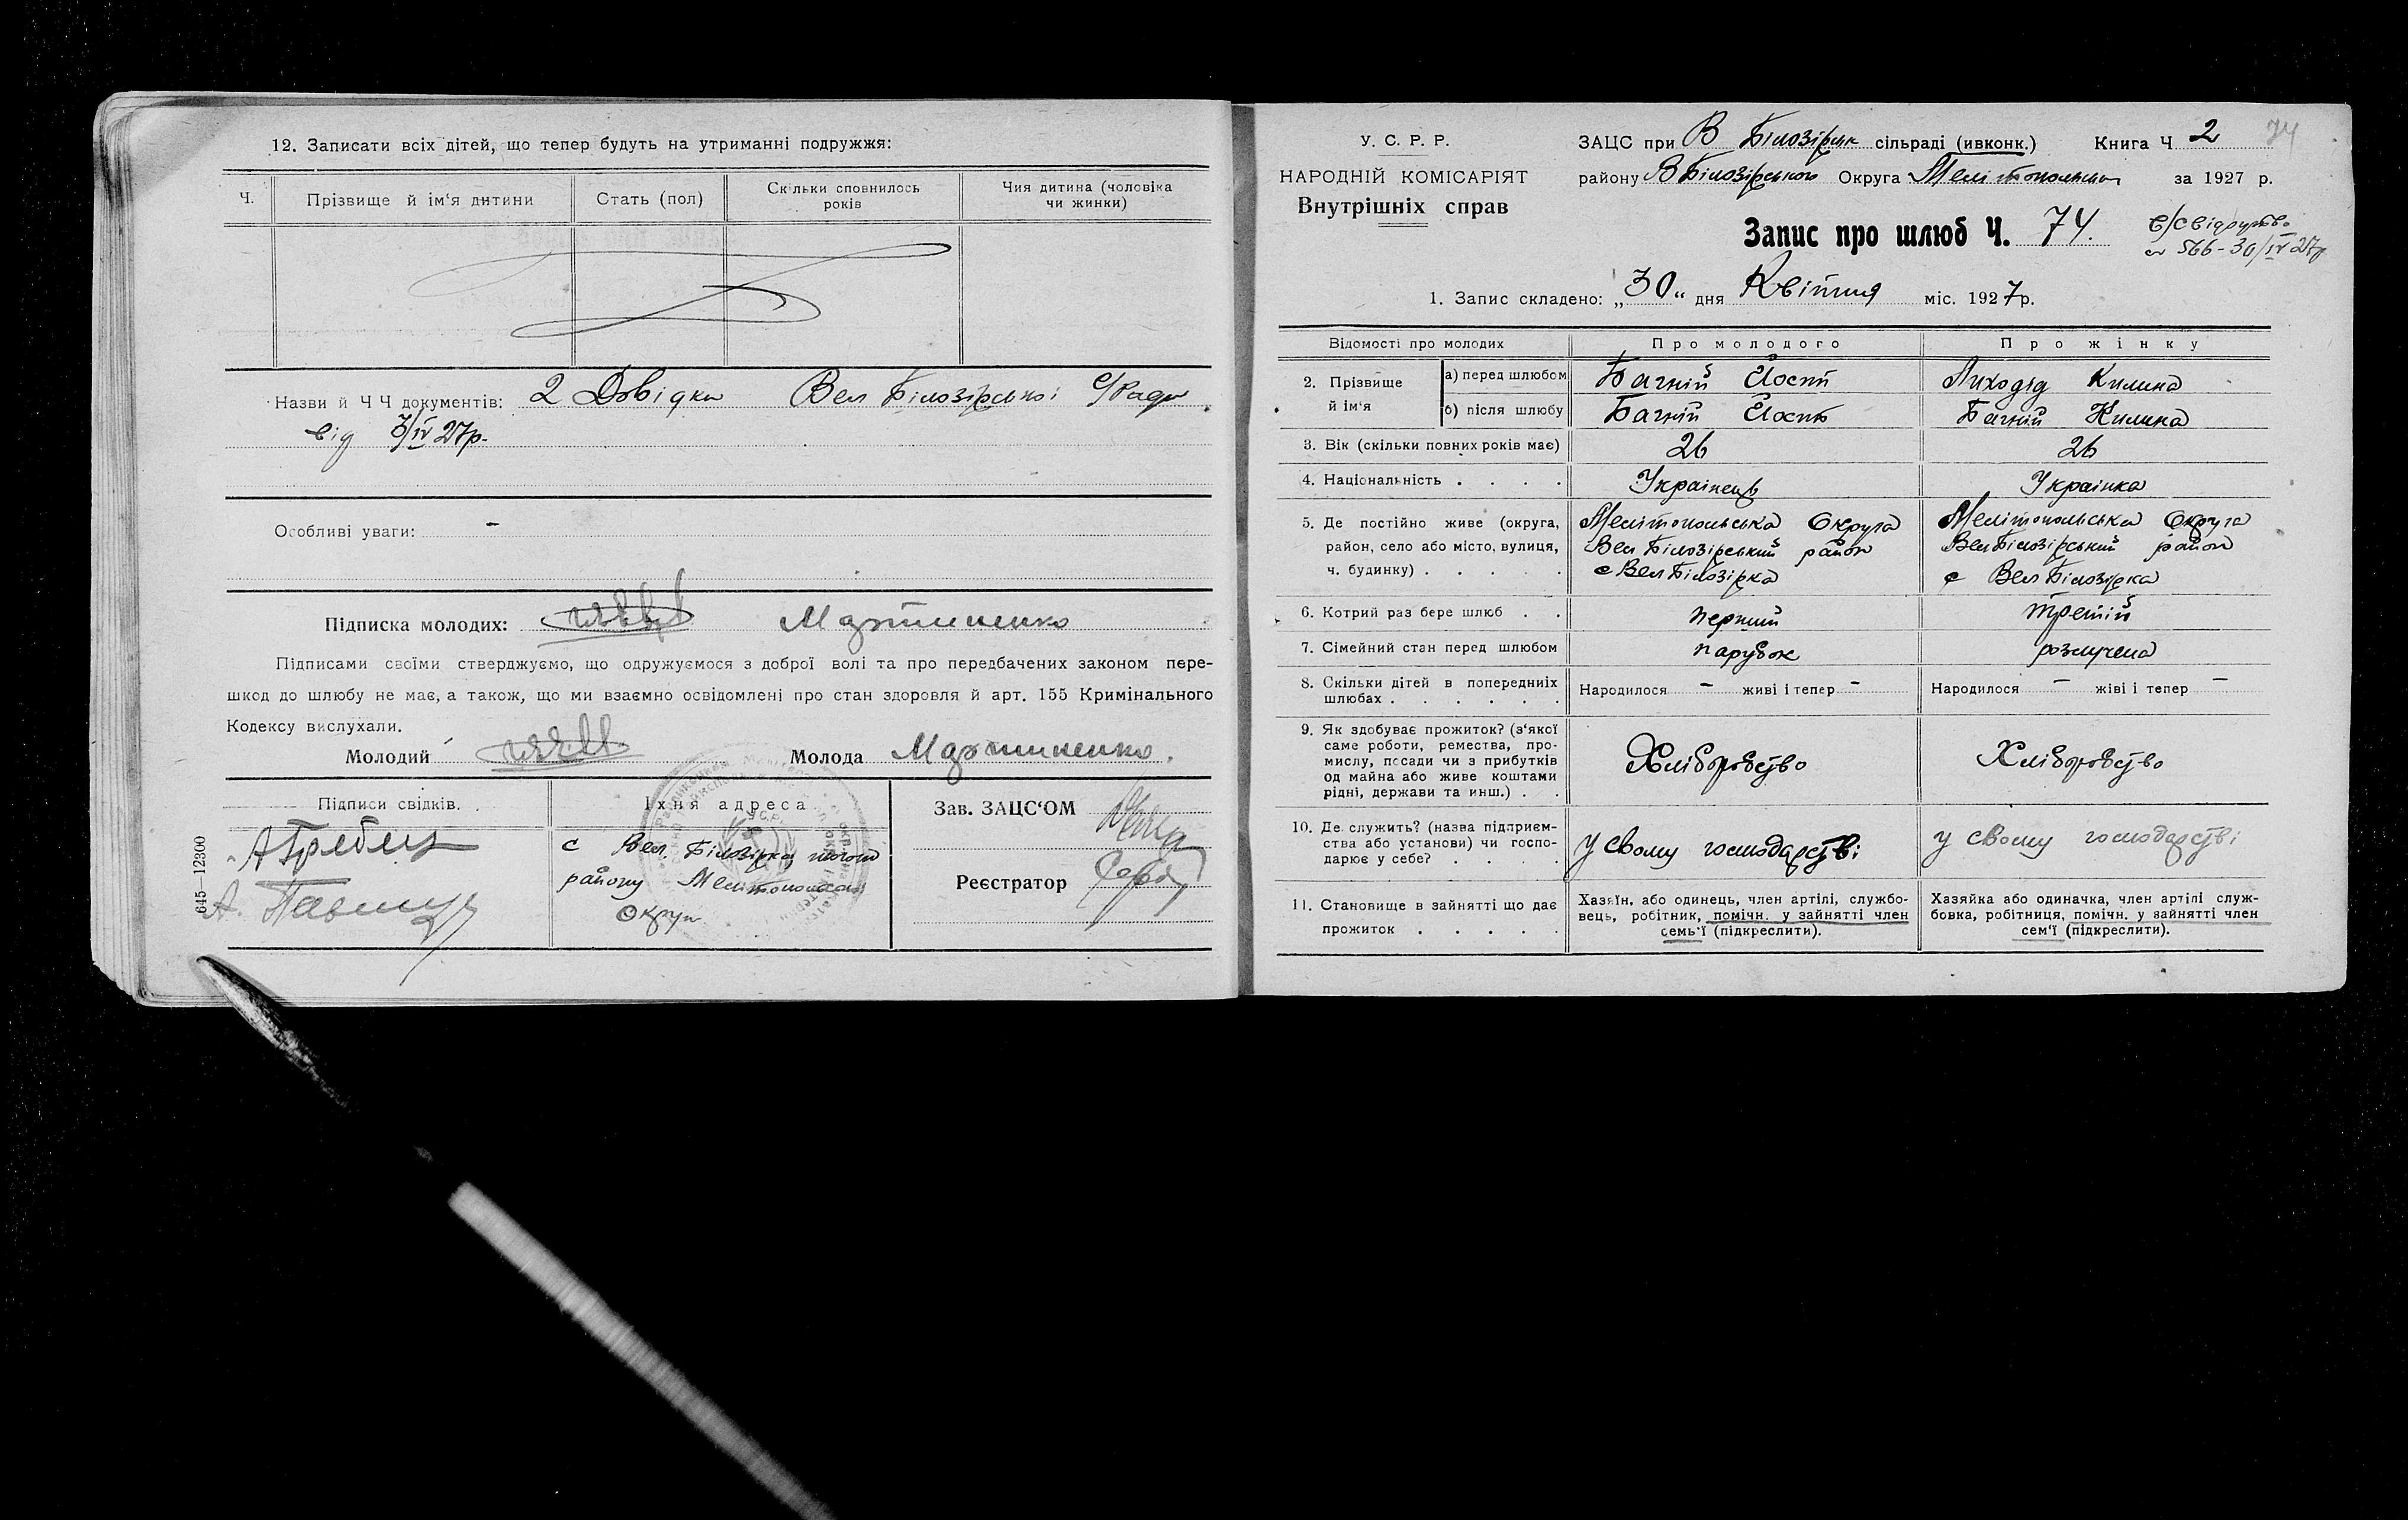 12. Записати всіх дітей, що тепер будуть на утриманні подружжя:
Ч. Прізвище й ім'я дитини Стать (пол) Скільки сповнилось років Чия дитина (чоловіка чи жинки)
Назви й Ч Ч документів: 2 Довідки Вел Білозірської с/Ради
від 3/IV 27р.
Особливі уваги: -
Підписка молодих:
Підписами своїми стверджуємо, що одружуємося з доброї волі та про передбачених законом пере-
шкод до шлюбу не має, а також, що ми взаємно освідомлені про стан здоровля й арт. 155 Кримінального
Кодексу вислухали.
Молодий Молода
Підписи свідків. Їхня адреса Зав. ЗАЦС'ОМ
с Вел. Білозірка того
району Мелітопольської
Округи
Реєстратор
645—12300
У. С. Р. Р.
НАРОДНІЙ КОМІСАРІЯТ
Внутрішніх справ
ЗАЦС при В Білозірськ сільраді (ивконк.) Книга Ч 2 74
району ВБілозірського Округа Мелітопольськ за 1927 р.
Запис про шлюб Ч. 74.
566-30/IV 27р
1. Запис складено: „30" дня Квітня міс. 1927р.
Відомості про молодих Про молодого Про жінку
2. Прізвище й ім'я
а) перед шлюбом Багній Йосип Лиходід Килина
б) після шлюбу Багній Йосип Багній Килина
3. Вік (скільки повних років має) 26 26
4. Національність . . . . Українець Українка
5. Де постійно живе (округа, Мелітопольська Округа Мелітопольська Округа
район, село або місто, вулиця, Вел Білозірський район Вел Білозірський район
ч. будинку) . . . . . с Вел Білозірка с Вел Білозірка
6. Котрий раз бере шлюб . . перший третій
7. Сімейний стан перед шлюбом парубок розлучена
8. Скільки дітей в попередниіх шлюбах . . . . . . Народилося - живі і тепер - Народилося - жіві і тепер -
9. Як здобуває прожиток? (з'якої
саме роботи, ремества, про-
мислу, посади чи з прибутків
од майна або живе коштами
рідні, держави та инш.) . .
Хліборобство Хліборобство
10. Де служить? (назва підприєм-
ства або установи) чи госпо-
дарює у себе? . . . .
у свому господарстві у свому господарстві
11. Становище в зайнятті що дає
прожиток . . . . .
Хазяїн. або одинець, член артілі, службо-
вець, робітник, помічн. у зайнятті член
семь'ї (підкреслити).
Хазяйка або одиначка, член артілі служ-
бовка, робітниця, помічн. у зайнятті член
сем'ї (підкреслити).